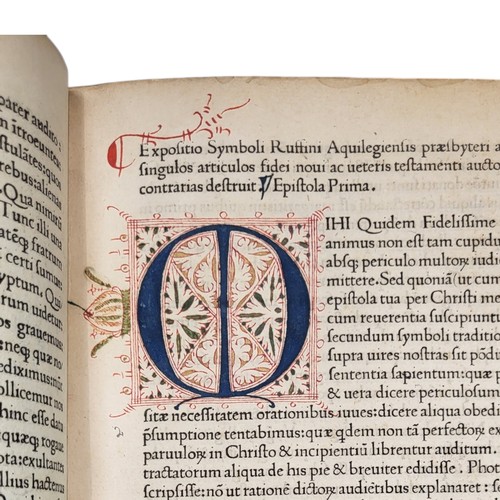 parer andito :
itroeuntem
stulātes: quos
rebus: alienan
Qua nimiū
Tunc illi una
ātēq; fratrum
certi sumus
yptum, Qui
rarum uidetur
os grauemus
neq; quæ no
edixinus: neq;
ollicemur non
hinc esse data
æq; rogaue
nota: exultantes
illius hactenus
Expositio Symboli Ruffini Aquilegiensis præsbyteri a
singulos articulos fidei noui ac ueteris testamenti aucto
contrarias destruit Epistola Prima.
MIHI Quidem Fidelissime
animus non est tam cupidu
absq; periculo multoꝝ iudi
mittere. Sed quoniā ut cum
epistola tua per Christi me
cum reuerentia suscipiunt
secundum symboli traditio
supra uires nostras sit pōdu
sententia sapientum: quæ p
& uera dicere periculosum
sitæ necessitatem orationibus iuues: dicere aliqua obedi
p̄sumptione tentabimus: quæ q̄dem non tā perfectoꝝ ex
paruuloꝝ in Christo & incipientiū librentur auditum.
tractatorum aliqua de his pie & breuiter edidisse. Phot
scripsisse: non ut ratione dictoꝝ audiētibus explanaret: